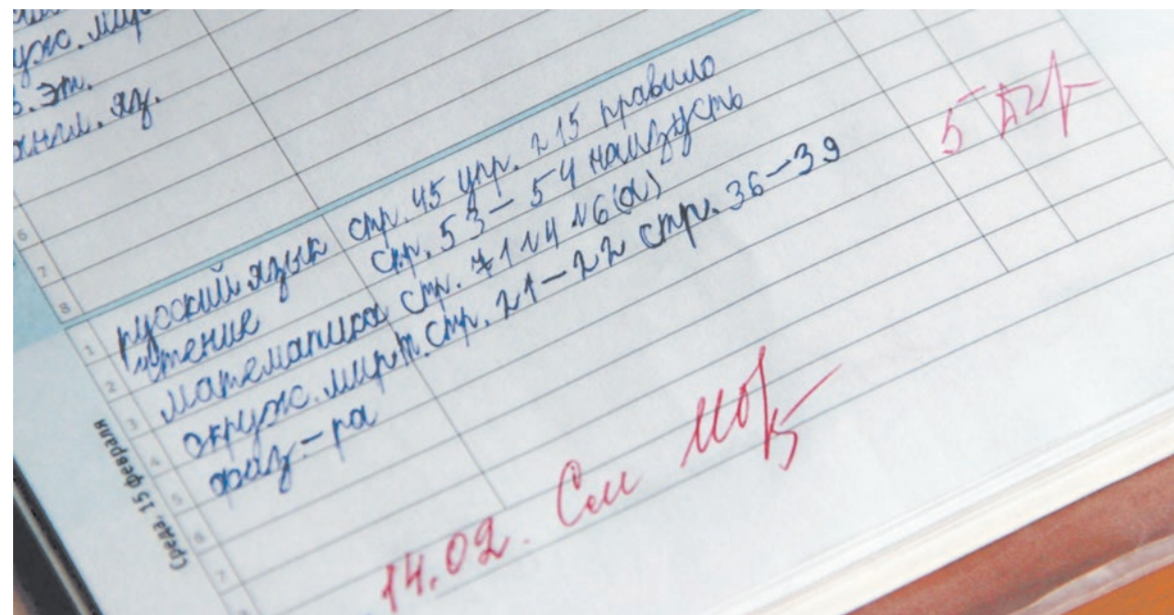 уж. мир
в. эт.
англ. яз.
6
7
8
Среда, 15 февраля
1 русский язык стр. 45 упр. 215 правило
2 чтение стр. 53-54 наизусть
3 математика стр. 71 №4 №6(а)
4 окруж. мир т. стр. 21-22 стр. 36-39
5 физ-ра
6
7
5
14.02. См